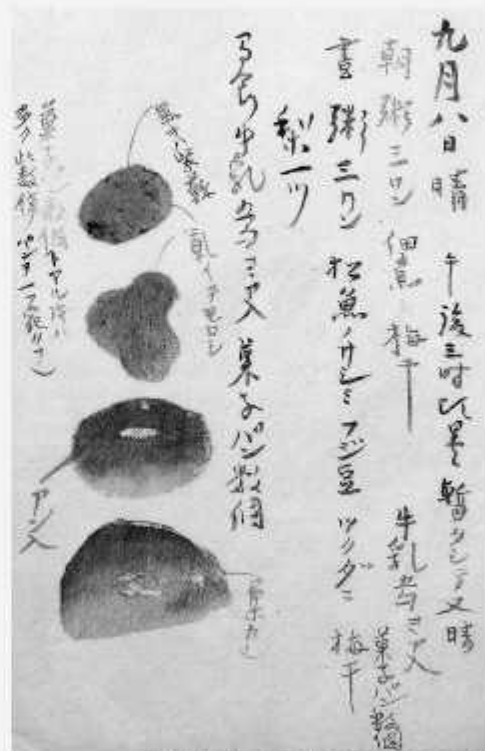 九月八日 晴 午後三時頃曇 暫クシテ又晴
朝 粥三ワン 佃煮 梅干
牛乳五勺ココア入
菓子パン数個
晝 粥三ワン 松魚ノサシミ フジ豆 ツクダニ 梅干
梨一ツ
間食 牛乳五勺ココア入 菓子パン数個
黒キハ紫蘇
乾イテモロシ
アン入
菓子パン数個トアル時ハ
多ク此数種ノパンヲ一ツ宛クフナリ)